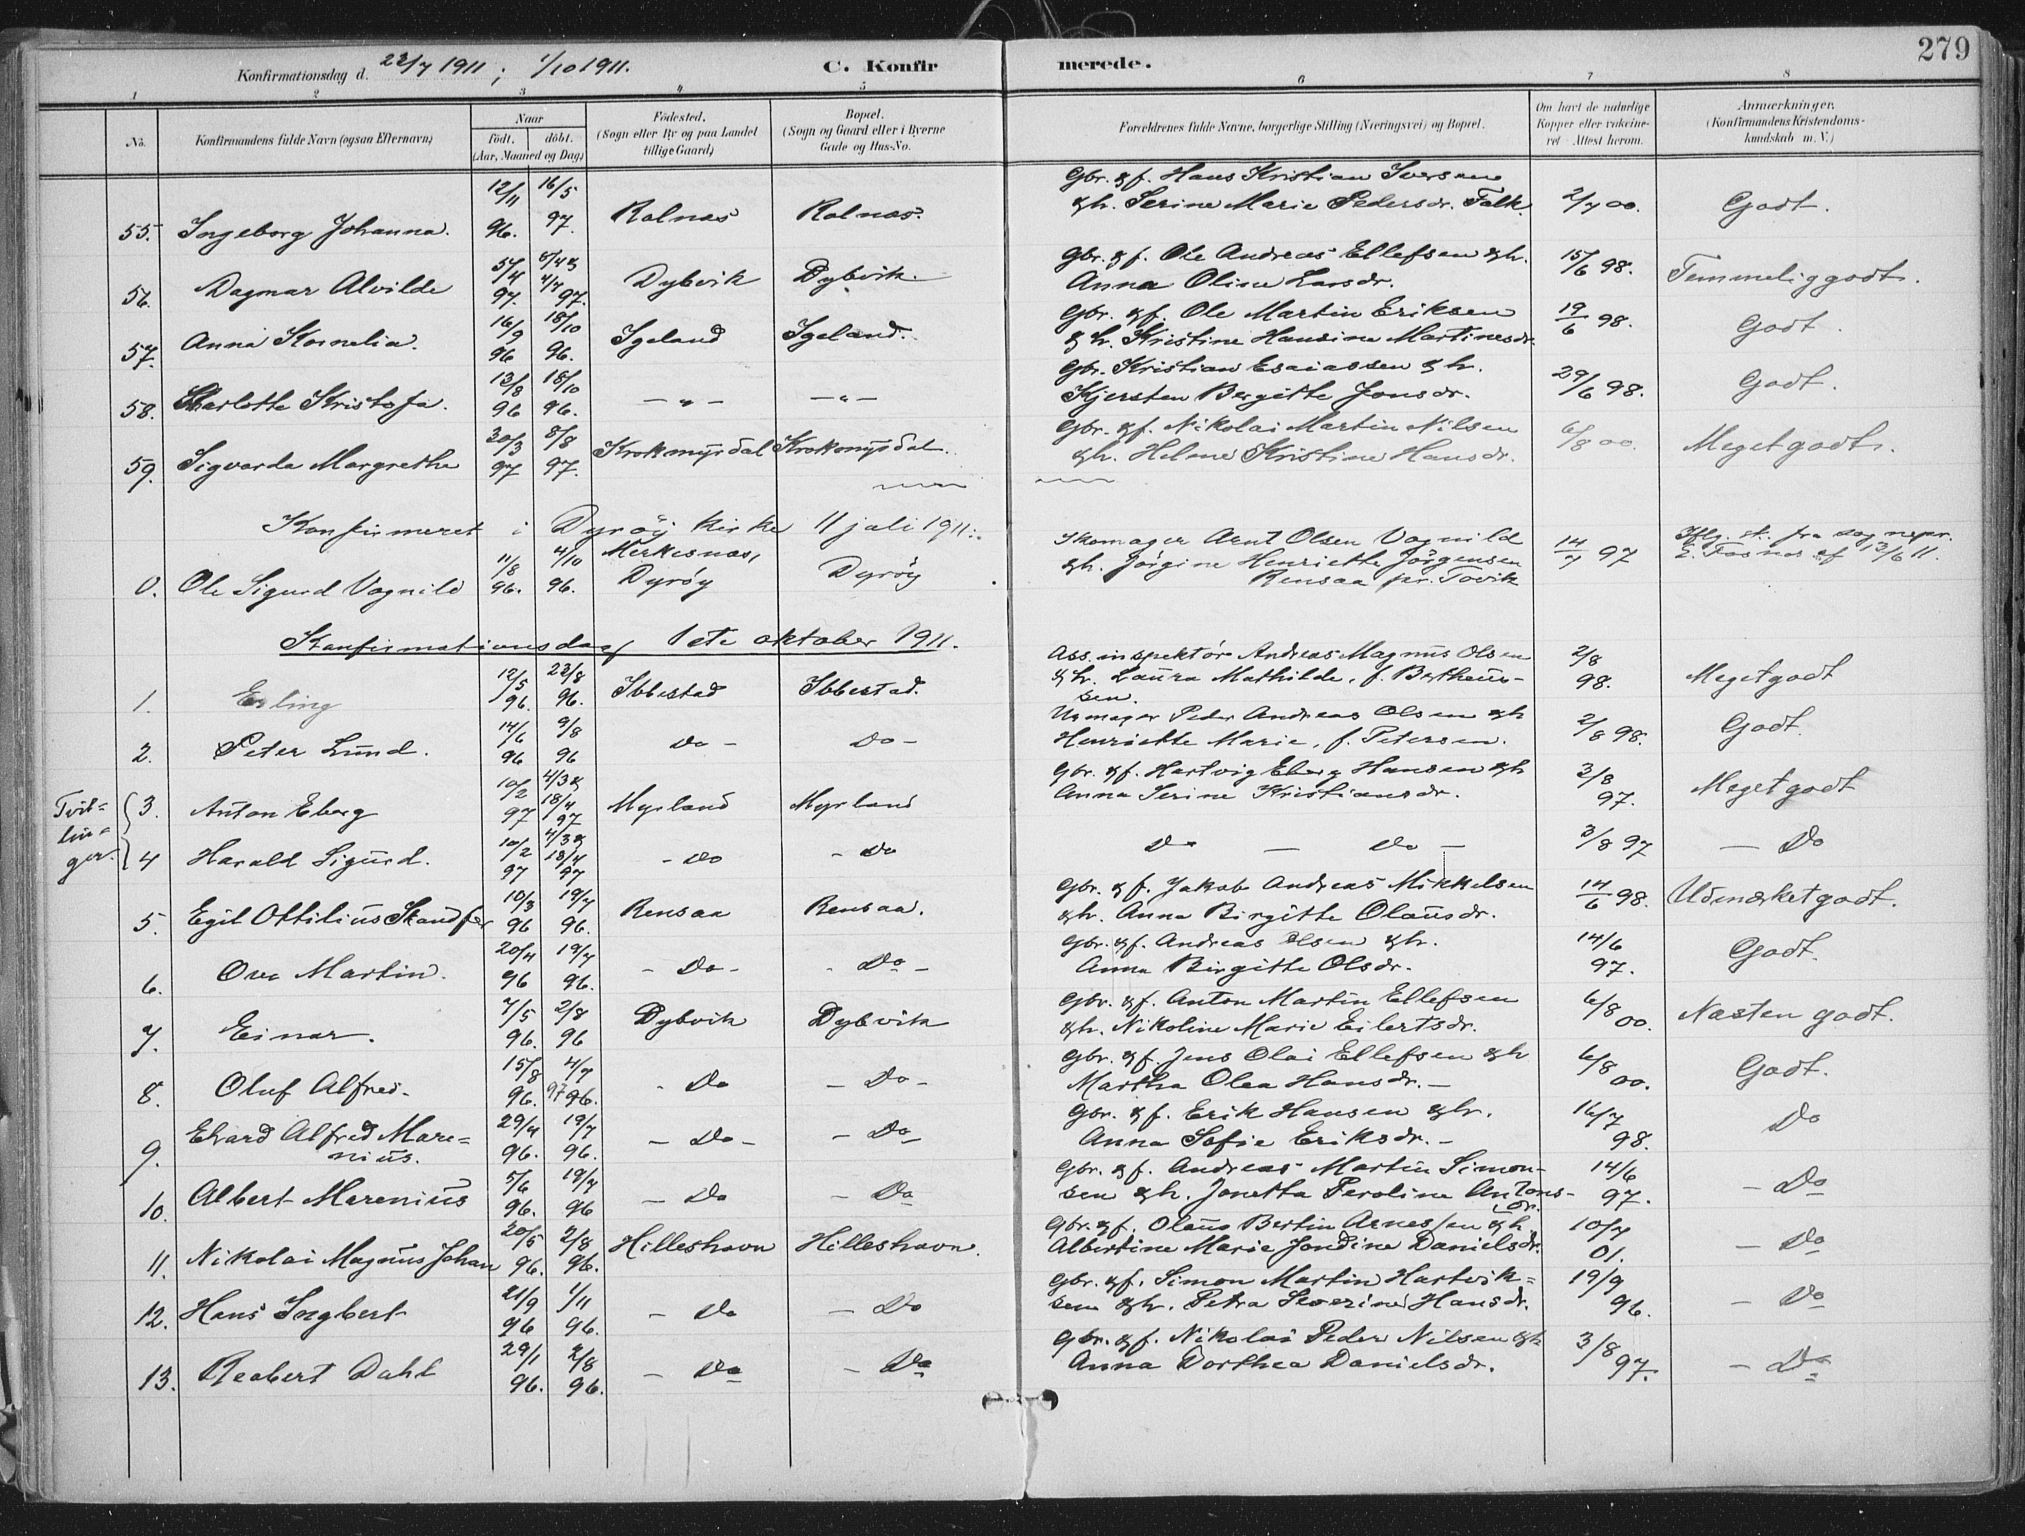 279
Konfirmationsdag d. 22/7 1911; 1/10 1911. C. Konfirmerede.
1 2 3 4 5 6 7 8
No. Konfirmandens fulde Navn (ogsaa Efternavn) Naar født. døbt. (Aar, Maaned og Dag) Fødested. (Sogn eller By og paa Landet tillige Gaard) Bopæl. (Sogn og Gaard eller i Byerne Gade og Hus-No. Forældrenes fulde Navne, borgerlige Stilling (Næringsvei) og Bopæl. Om havt de naturlige Kopper eller vakcineret – Attest herom. Anmærkninger. (Konfirmandens Kristendomskundskab m. V.)
55. Ingeborg Johanna. 12/11 96. 16/5 97. Rolnæs Rolnæs. Gbr. & f. Hans Kristian Iversen & h. Serine Marie Pedersdr. Falk. 2/7 00. Godt.
56. Dagmar Alvilde 5/4 97. 5/4 & 4/7 97. Dybvik Dybvik. Gbr. & f. Ole Andreas Ellefsen & h. Anna Oline Larsdr. 15/6 98. Temmelig godt.
57. Anna Kornelia. 16/9 96 18/10 96. Igeland Igeland. Gbr. & f. Ole Martin Eriksen & h. Kristine Hansine Martinesdr. 19/6 98. Godt.
58. Charlotte Kristofa. 13/8 96 18/10 96. — „ — — „ — Gbr. Kristian Esaiassen & h. Kjersten Bergitte Jonsdr. 29/6 98. Godt.
59. Sigvarda Margrethe 20/3 97 8/8 97. Krokmyrdal Krokmyrdal. Gbr. & f. Nikolai Martin Nilsen & h. Helmine Kristine Hansdr. 6/8 00. Meget godt.
Konfirmeret i Dyrøy kirke 11 juli 1911:
0. Ole Sigurd Vognild 11/8 96. 4/10 96. Merkesnæs, Dyrøy Dyrøy Skomager Arnt Olsen Vognild & h. Jørgine Henriette Jørgensen Rensaa pr. Tovik 14/7 97 Iflg. sk. fra sognepr. af 13/6 11.
Konfirmationsdag 1ste oktober 1911.
1. Erling 12/5 96. 23/8 96. Ibbestad Ibbestad. Ass. inspektør Andreas Magnus Olsen & h. Laura Mathilde, f. Bertheussen. 2/8 98. Meget godt
2. Peter Lund. 14/6 96 9/8 96 Do – Do – Urmager Peder Andreas Olsen & h Henriette Marie, f. Petersen. 2/8 98. Godt.
Tvillinger
3. Anton Eberg 10/2 97 4/3 & 18/4 97 Myrland Myrland Gbr. & f. Hartvig Eberg Hansen & h Anna Serine Kristiansdr. 3/8 97. Meget godt
4 Harald Sigurd. 10/2 97 4/3 & 18/4 97 – Do – Do Do — Do — 3/8 97 — Do
5. Egil Ottilius Skandfer 10/3 96 19/7 96. Rensaa Rensaa. Gbr. & f. Jakob Andreas Mikkelsen & h. Anna Birgitte Olausdr. 14/6 98. Udmærket godt.
6. Ove Martin. 20/4 96 19/7 96. – Do – – Do – Gbr. & f. Andreas Olsen & h. Anna Birgitte Olsdr. 14/6 97. Godt.
7. Einar. 7/5 96. 2/8 96 Dybvik Dybvik Gbr. & f. Anton Martin Ellefsen & h. Nikoline Marie Eilertsdr. 6/8 00. Næsten godt.
8. Oluf Alfred. 15/8 96. 4/7 97 96. – Do – Do – Gbr. & f. Jens Olai Ellefsen & h Martha Olea Hansdr. – 6/8 00. Godt.
9. Edvard Alfred Marenius. 29/4 96. 19/7 96. – Do – – Do – Gbr. & f. Erik Hansen & h. Anna Sofie Eriksdr. – 16/7 98. Do
10. Albert Marenius 5/6 96. 19/7 96 – Do – Do Gbr. & f. Andreas Martin Simonsen & h. Jonetta Peroline Antonsdr. 14/6 97. – Do
11. Nikolai Magnus Johan 20/5 96. 2/8 96. Hilleshavn Hilleshavn. Gbr. & f. Olaus Bertin Arnessen & h. Albertine Marie Jondine Danielsdr. 10/7 01. – Do
12. Hans Ingbert 21/9 96 1/11 96. – Do – Do Gbr. & f. Simon Martin Hartviksen & h. Petra Severine Hansdr. 19/9 96. – Do
13. Reobert Dahl 29/1 96. 2/8 96. – Do – Do Gbr. & f. Nikolai Peder Nilsen & h Anna Dorthea Danielsdr. 3/8 97. – Do